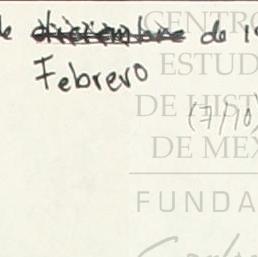 de diciembre de 1
Febrero
(7/10)
CENTRO
ESTUD
DE HIST
DE MÉX
FUNDA